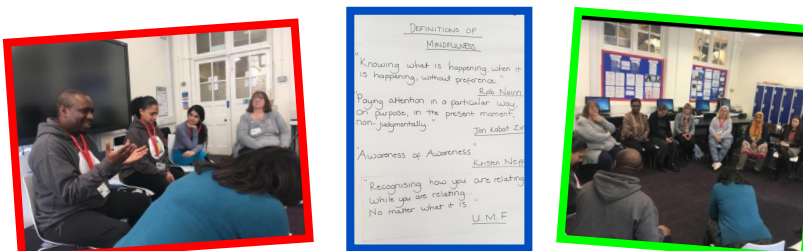 DEFINITIONS OF
MINDFULNESS
"Knowing what is happening when it
is happening, without preference."
Rob Nairn
"Paying attention in a particular way,
on purpose, in the present moment,
non-judgmentally."
Jon Kabat Zin
"Awareness of Awareness"
Kristen Neff
"Recognising how you are relating
while you are relating...
No matter what it is."
U.M.F